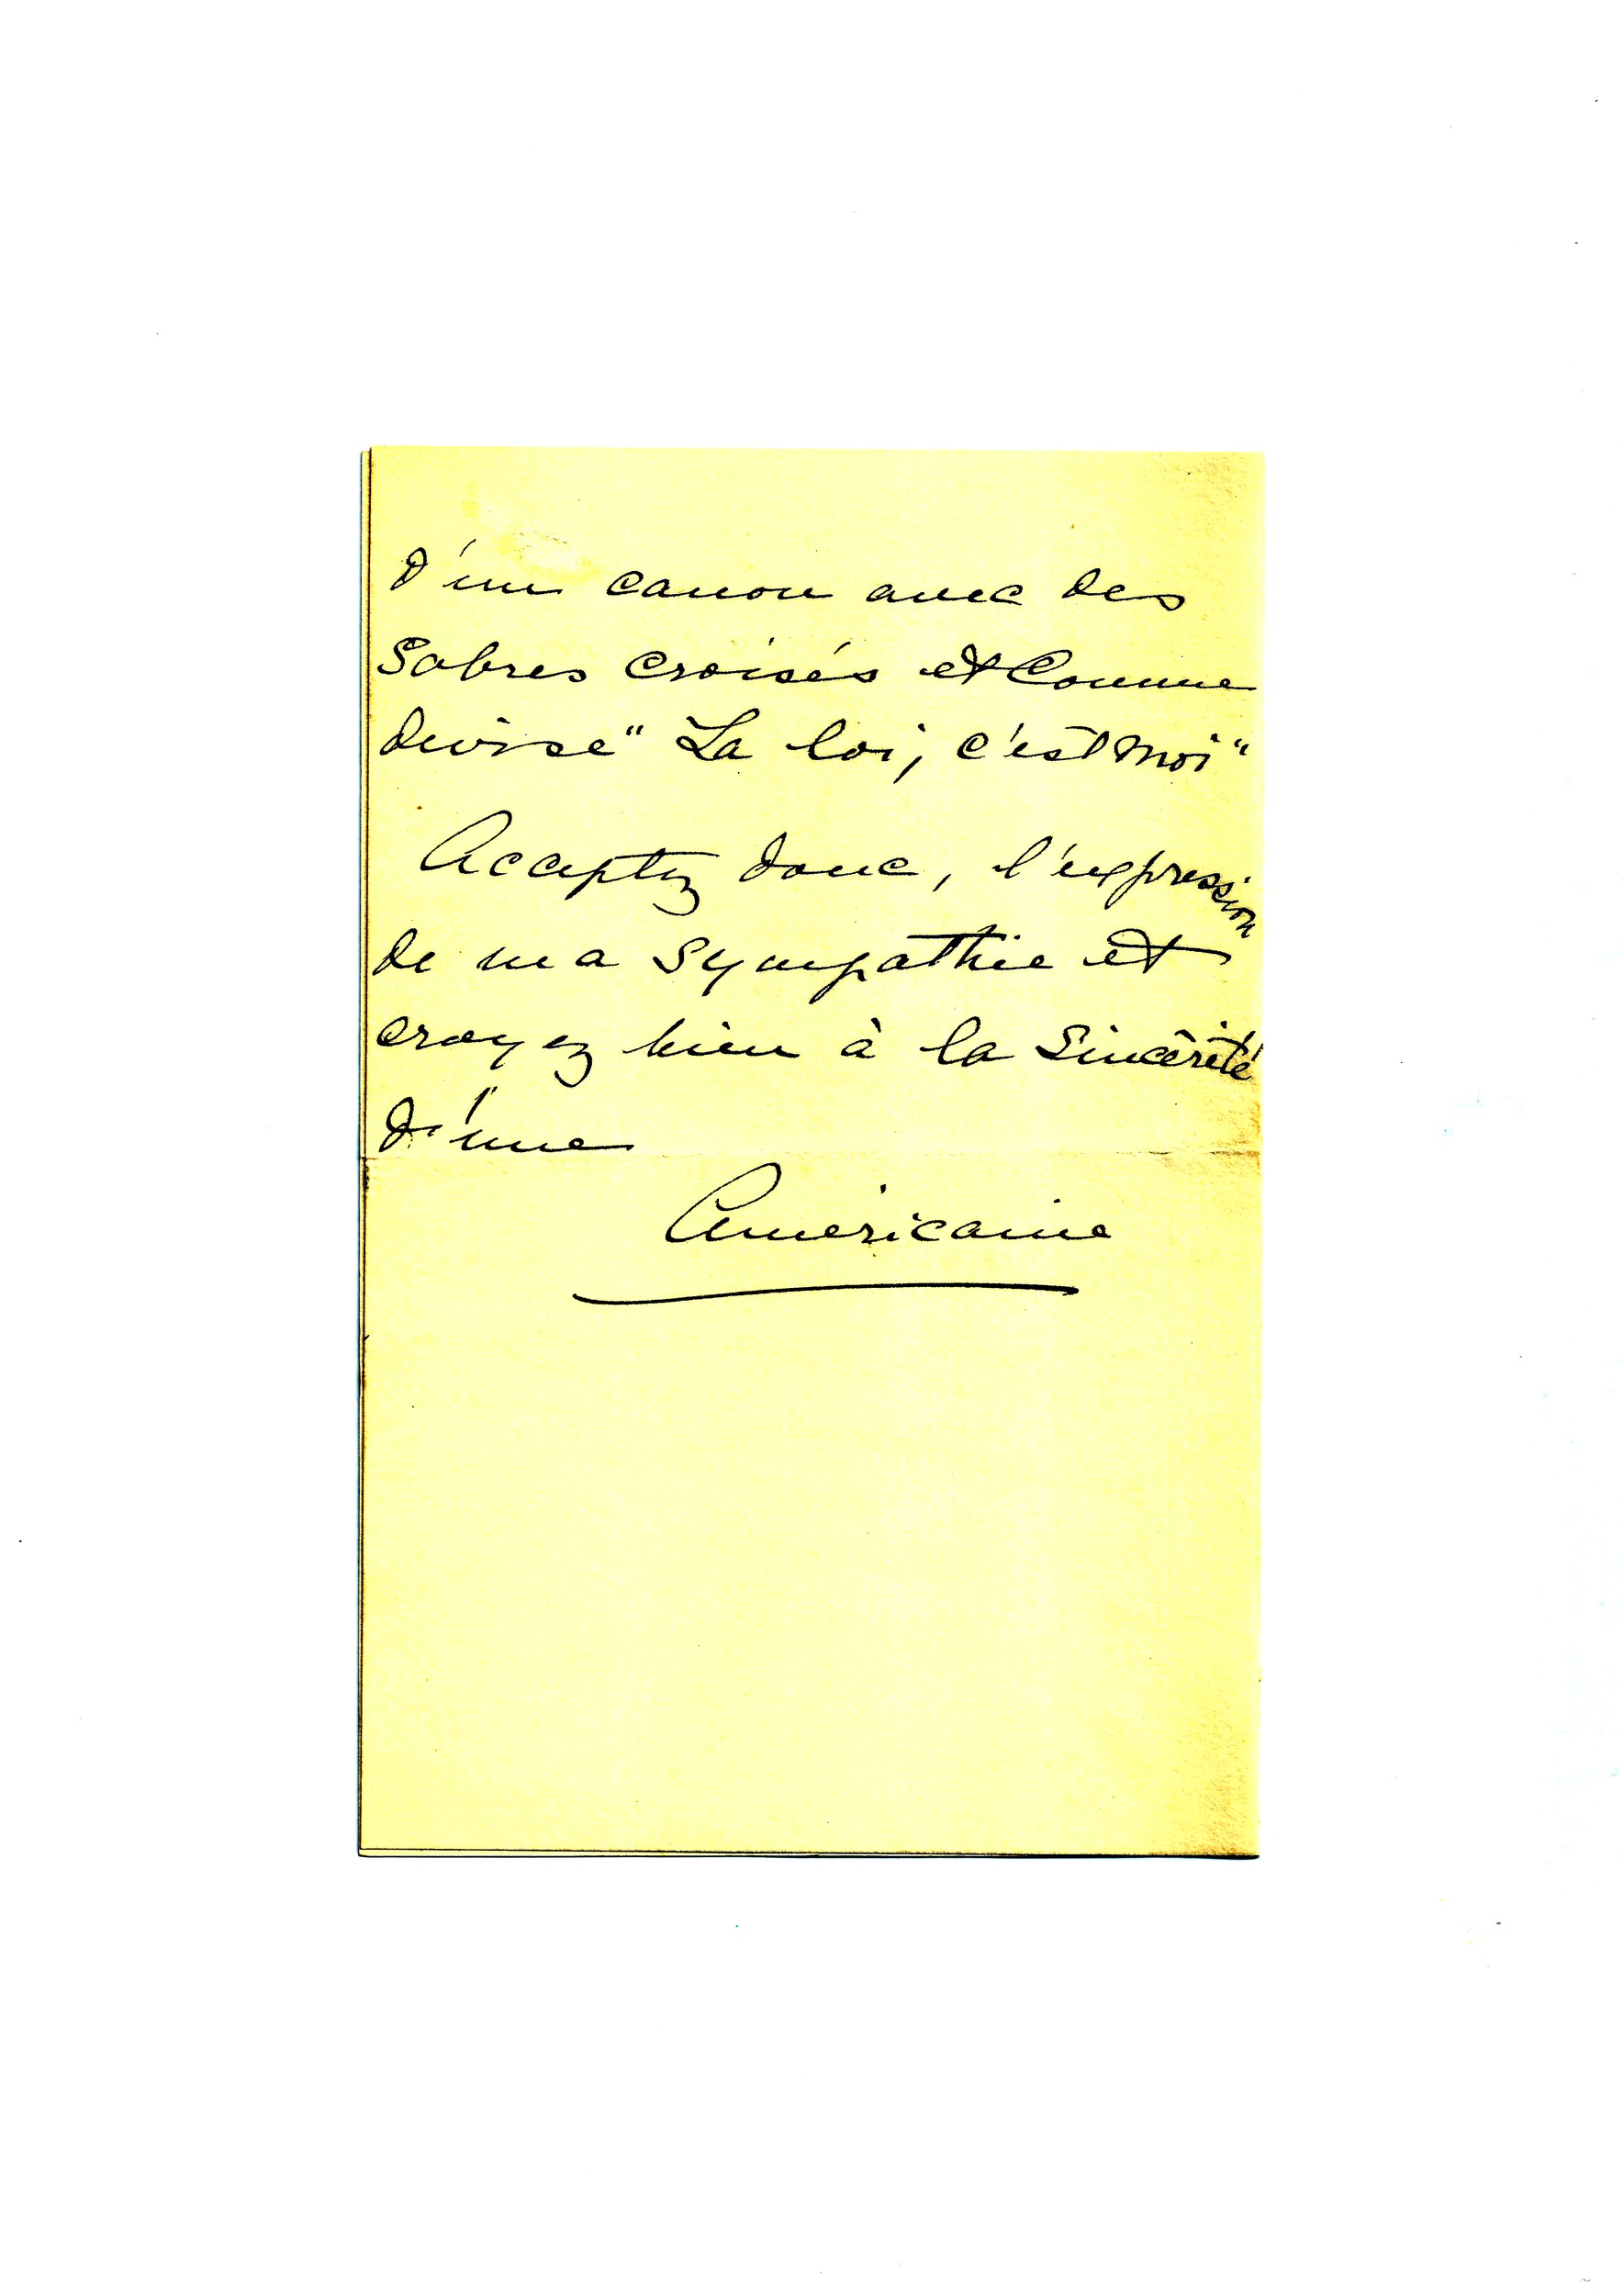 d'un canon avec des
Sabres croisés et Comme
devise "La loi, c'est moi"
Acceptez donc, l'expression
de ma sympathie et
croyez bien à la Sincérité
d'une
Américaine